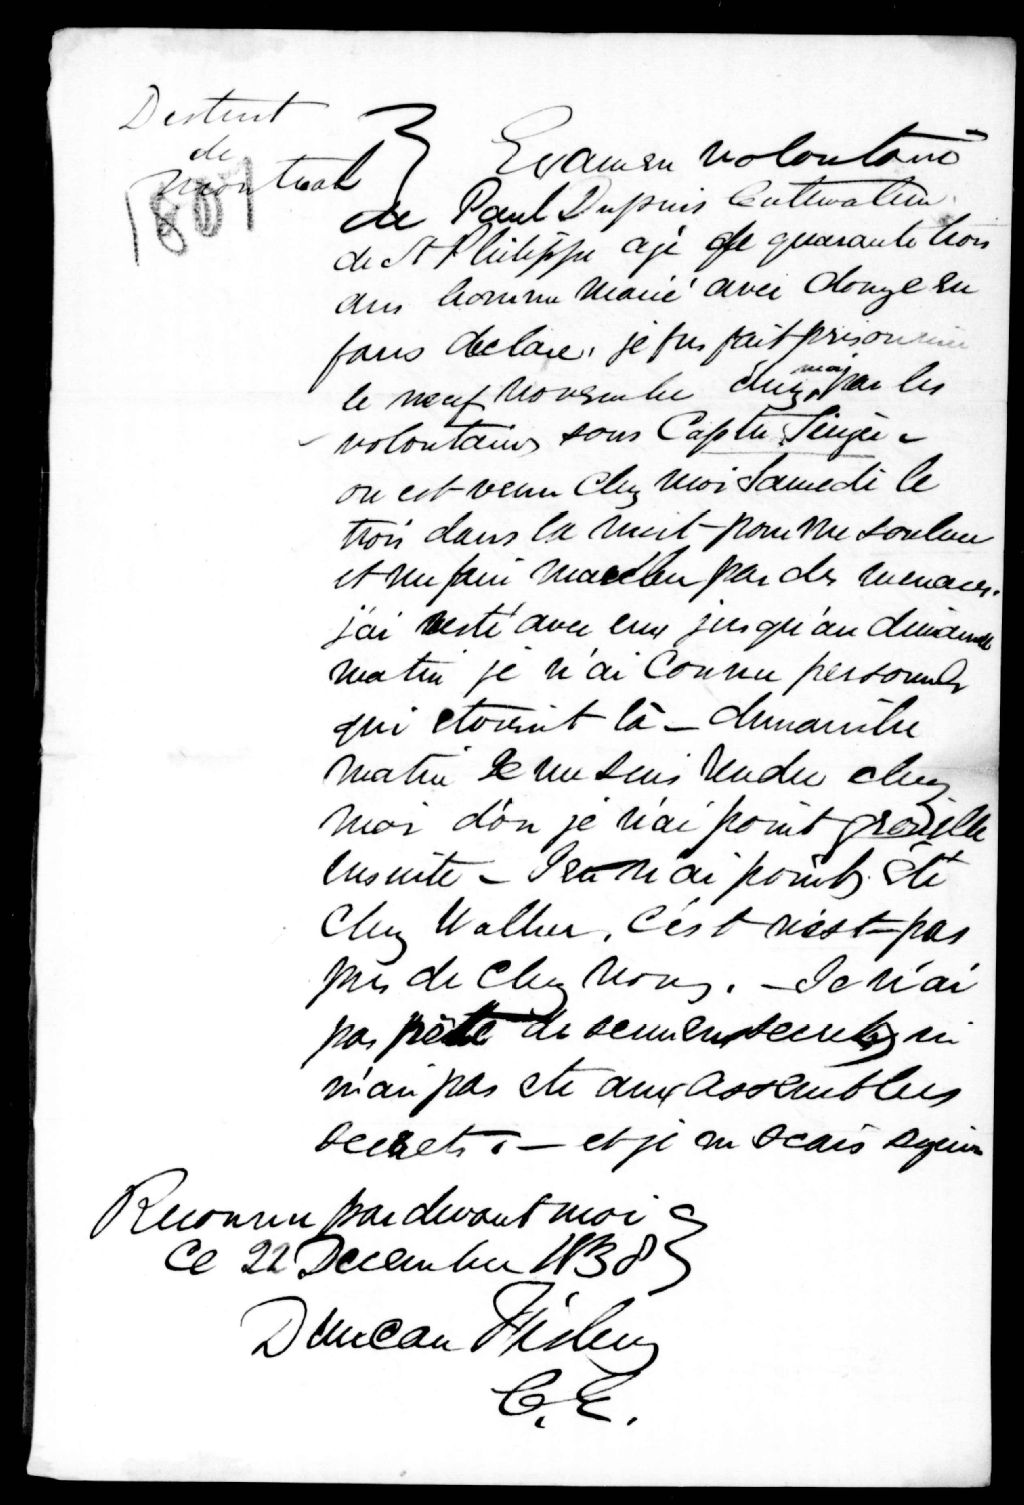 District
de
Montreal
1801
Examen volontaire
de Paul Dupuis Cultivateur
de St Philippe agé de quarante trois
ans homme marié avec douze en
fans declare, je fus fait prisonnier
le neuf Novembre chez moi par les
volontaires sous Captn
on est venu chez moi Samedi le
trois dans la nuit pour me soulever
et me faire marcher par des menaces.
j'ai resté avec eux jusqu'au dimanche
matin je n'ai connu personnes
qui etoient là — dimanche
matin Je me suis rendu chez
moi d'ou je n'ai point grouillé
ensuite — Je n'ai point été
chez Walker, c'est n'est pas
près de chez nous. — Je n'ai
pas prété de serment secrets ni
n'ai pas ete aux assemblees
secrets. — et je ne scais signer
Reconnu pardevant moi
Ce 22 Decembre 1838
Duncan Fisher
C. E.